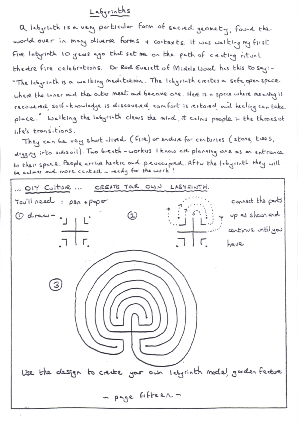 Labyrinths
A labyrinth is a very particular form of sacred geometry, found the
world over in many diverse forms + contexts. It was walking my first
fire labyrinth 10 years ago that set me on the path of creating ritual
theatre fire celebrations. On Rod Everett of Middle Wood has this to say:-
"The labyrinth is a walking meditation. The labyrinth creates a safe open space
where the inner and the outer meet and become one. Here is a space where meaning is
recovered, self-knowledge is discovered, comfort is restored, and healing can take
place." Walking the labyrinth clears the mind, it calms people in the throes of
life's transitions.
They can be very short-lived (fire) or endure for centuries (stone, trees,
digging into subsoil). Two breath-workers I know are planning one as an entrance
to their space. People arrive hectic and preoccupied. After the labyrinth they will
be calmer and more centred - ready for the work!
... DIY Culture ... CREATE YOUR OWN LABYRINTH.
You'll need: - pen + paper
① draw -
②
connect the parts
up as shown and
continue until you
have
③
Use the design to create your own labyrinth model, garden feature
- page fifteen -